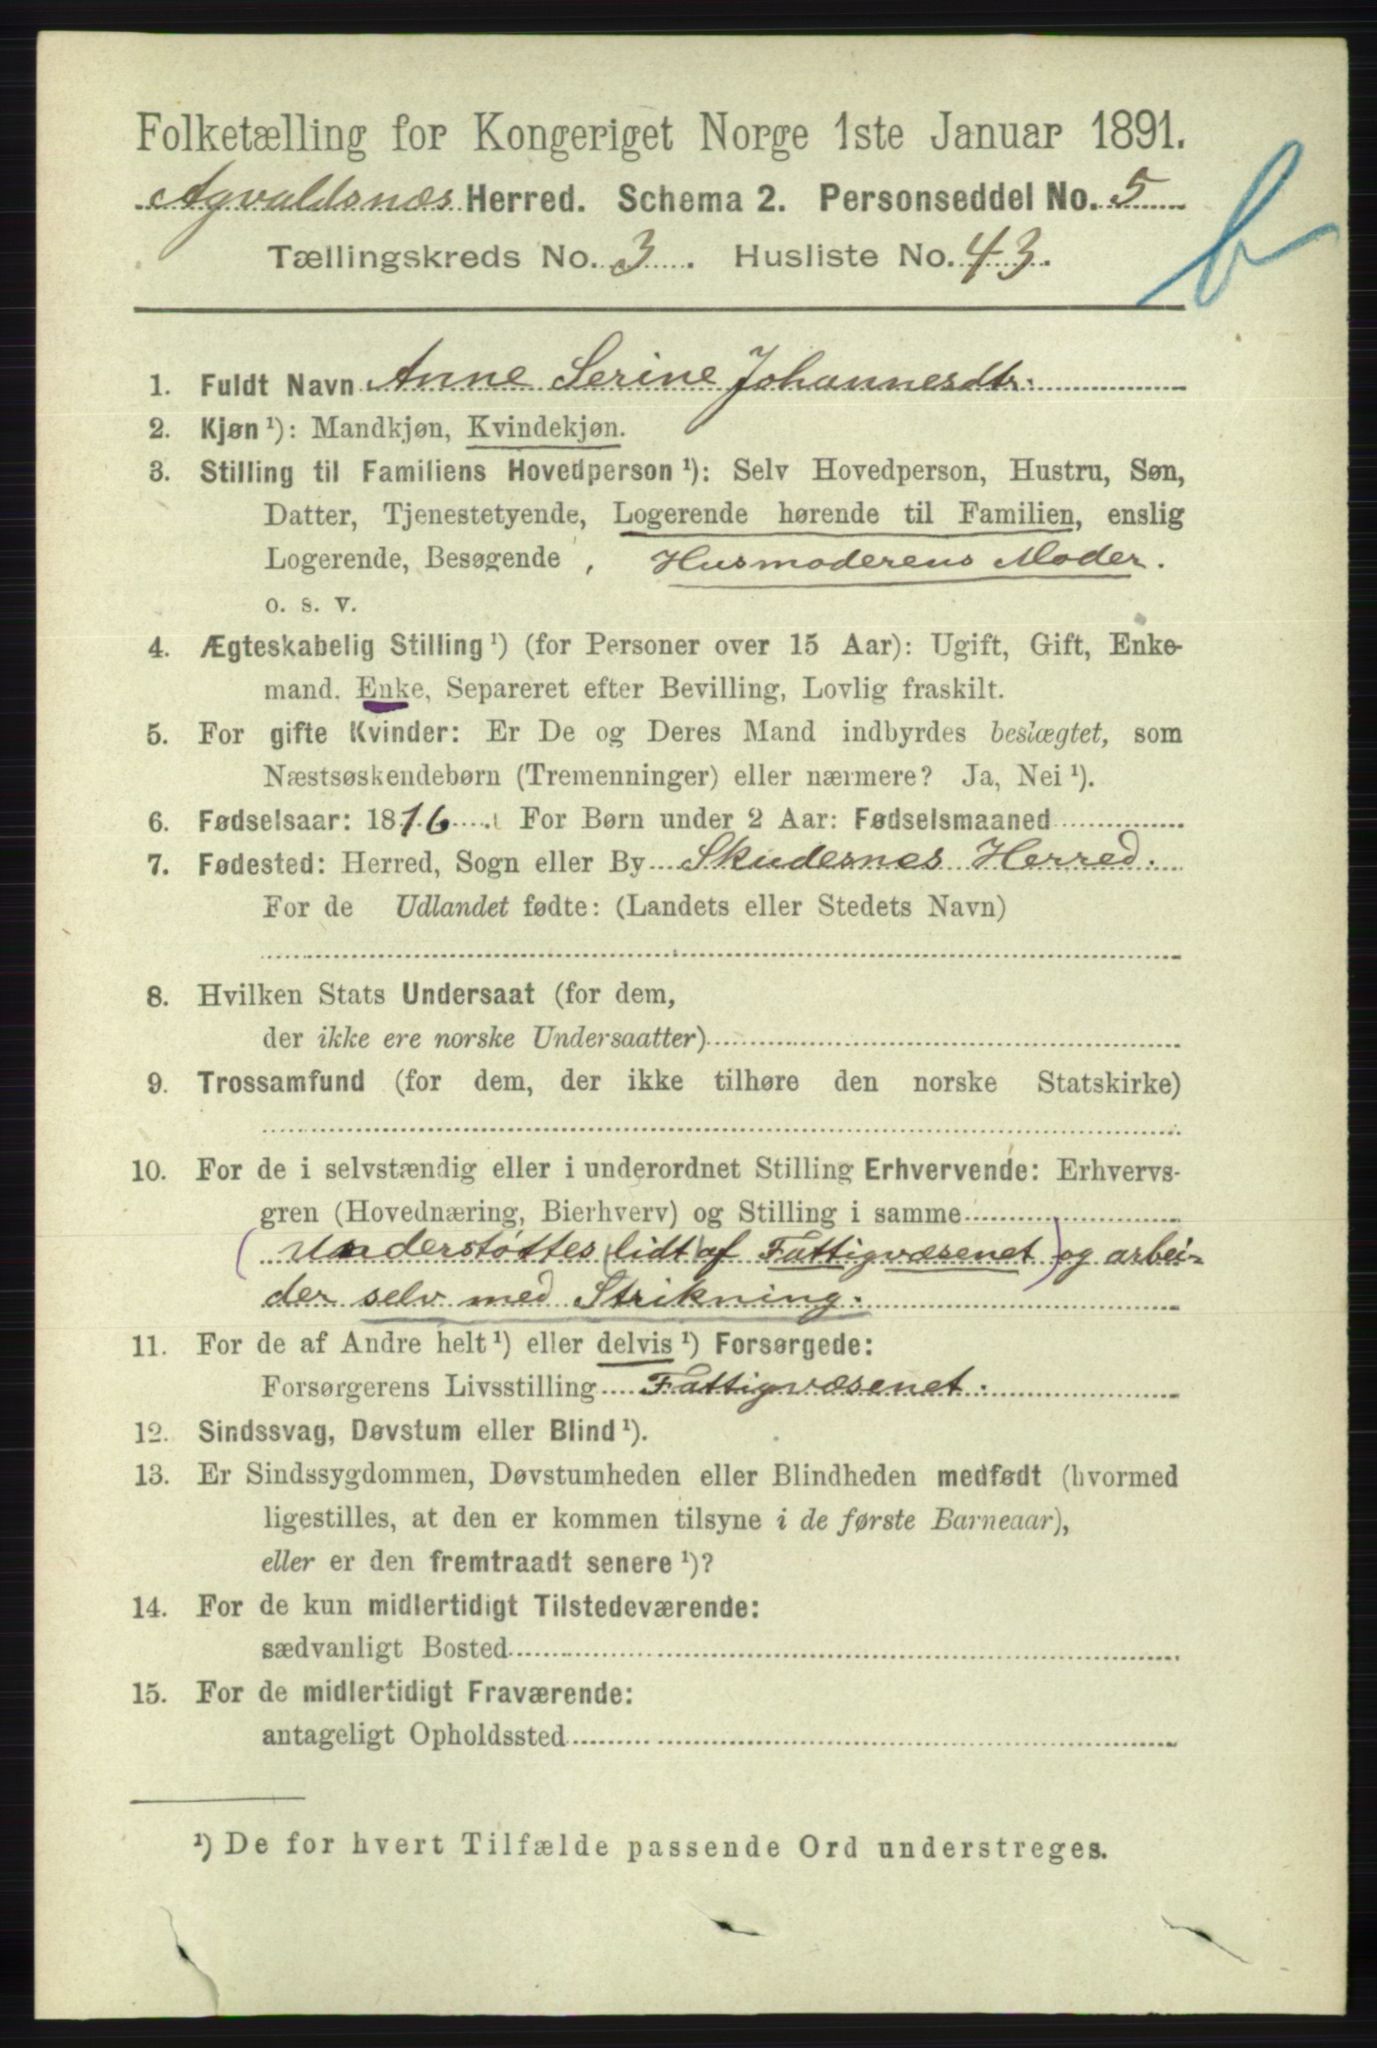 Folketælling for Kongeriget Norge 1ste Januar 1891.
Agvaldsnæs Herred. Schema 2. Personseddel No. 5
Tællingskreds No. 3. Husliste No. 43.
b
1. Fuldt Navn Anne Serine Johannesdtr.
2. Kjøn ¹): Mandkjøn, Kvindekjøn.
3. Stilling til Familiens Hovedperson ¹): Selv Hovedperson, Hustru, Søn,
Datter, Tjenestetyende, Logerende hørende til Familien, enslig
Logerende, Besøgende, Husmoderens Moder.
o. s. v.
4. Ægteskabelig Stilling ¹) (for Personer over 15 Aar): Ugift, Gift, Enke-
mand, Enke, Separeret efter Bevilling, Lovlig fraskilt.
5. For gifte Kvinder: Er De og Deres Mand indbyrdes beslægtet, som
Næstsøskendebørn (Tremenninger) eller nærmere? Ja, Nei ¹).
6. Fødselsaar: 1816. For Børn under 2 Aar: Fødselsmaaned
7. Fødested: Herred, Sogn eller By Skudesnes Herred.
For de Udlandet fødte: (Landets eller Stedets Navn)
8. Hvilken Stats Undersaat (for dem,
der ikke ere norske Undersaatter)
9. Trossamfund (for dem, der ikke tilhøre den norske Statskirke)
10. For de i selvstændig eller i underordnet Stilling Erhvervende: Erhvervs-
gren (Hovednæring, Bierhverv) og Stilling i samme
(Understøttes (lidt) af Fattigvæsenet) og arbei-
der selv med Strikning.
11. For de af Andre helt ¹) eller delvis ¹) Forsørgede:
Forsørgerens Livsstilling Fattigvæsenet.
12. Sindssvag, Døvstum eller Blind ¹).
13. Er Sindssygdommen, Døvstumheden eller Blindheden medfødt (hvormed
ligestilles, at den er kommen tilsyne i de første Barneaar),
eller er den fremtraadt senere ¹)?
14. For de kun midlertidigt Tilstedeværende:
sædvanligt Bosted
15. For de midlertidigt Fraværende:
antageligt Opholdssted
¹) De for hvert Tilfælde passende Ord understreges.